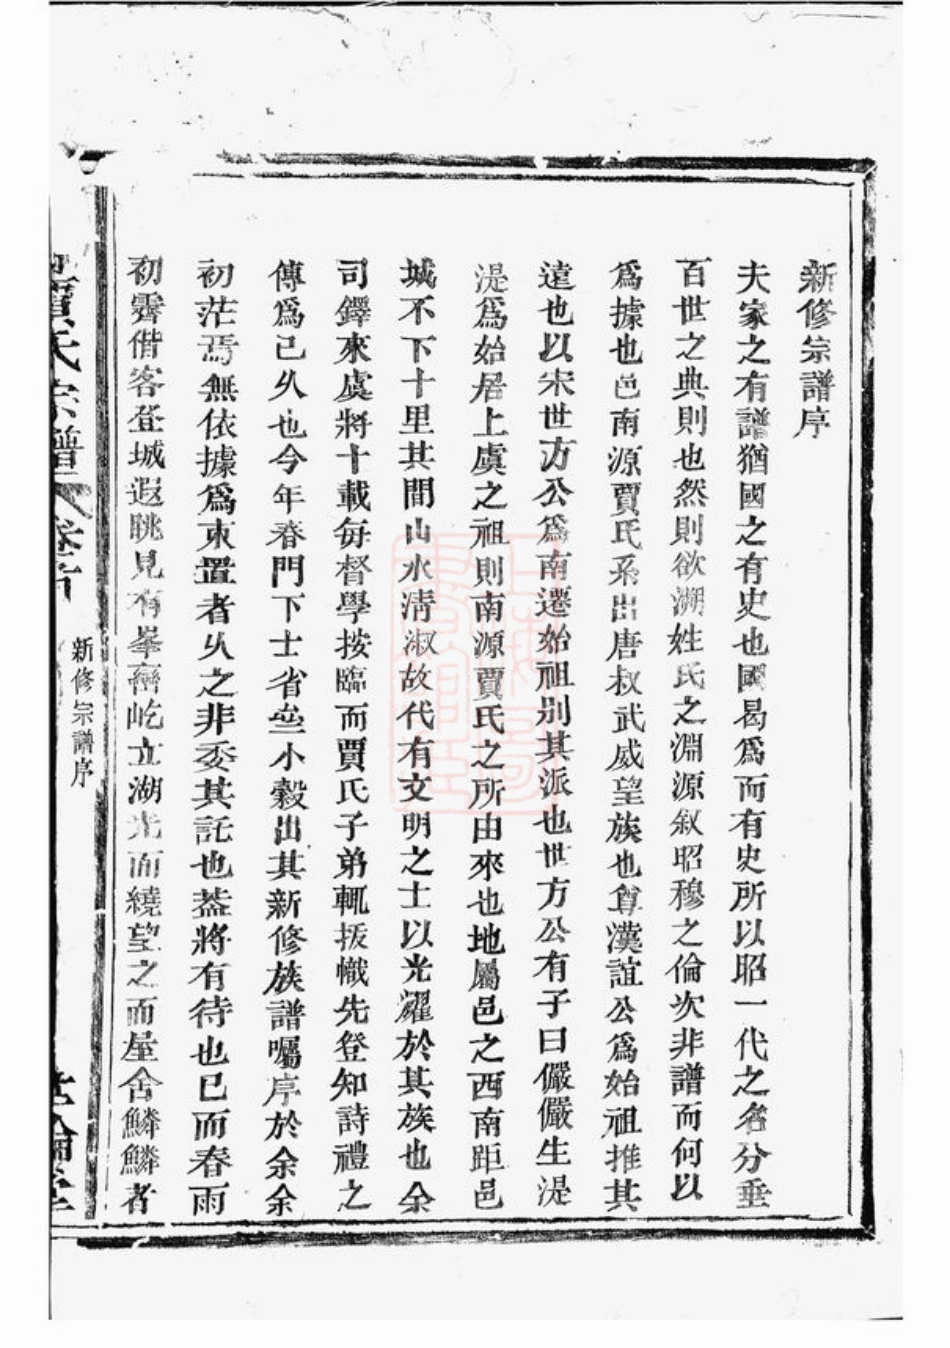 新修宗譜序
夫家之有譜猶國之有史也國曷爲而有史所以昭一代之名分垂
百世之典則也然則欲溯姓氏之淵源叙昭穆之倫次非譜而何以
爲據也邑南源賈氏系出唐叔武威望族也尊漢誼公爲始祖推其
遠也以宋世方公爲南遷始祖别其派也世方公有子曰儼儼生湜
湜爲始居上虞之祖則南源賈氏之所由來也地屬邑之西南距邑
城不下十里其間山水淸淑故代有文明之士以光耀於其族也余
司鐸來虞將十載每督學按臨而賈氏子弟輒拔幟先登知詩禮之
傳爲已久也今年春門下士省叁小榖出其新修族譜囑序於余余
初茫焉無依據爲束置者久之非委其託也葢將有待也已而春雨
初霽偕客登城遐眺見有峯巒屹立湖光而繞望之而屋舍鱗鱗者
賈氏宗譜 卷首
新修宗譜序